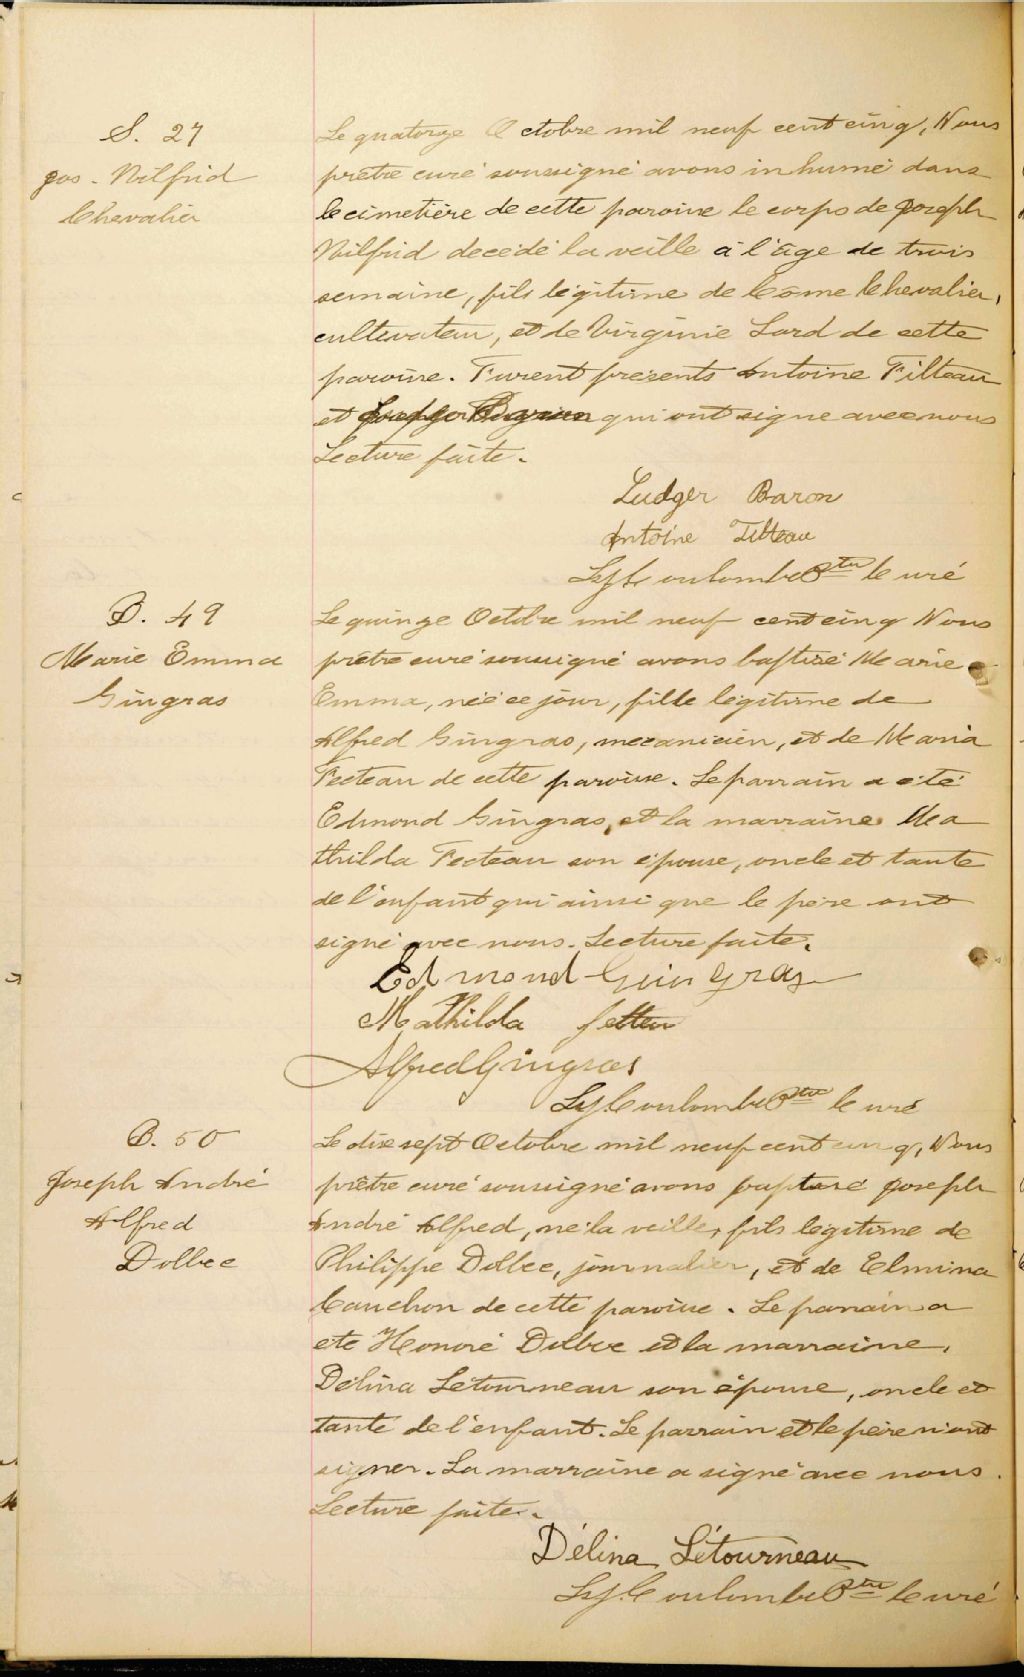 S. 27
Jos. Wilfrid
Chevalier
Le quatorze Octobre mil neuf cent cinq, Nous
prêtre curé soussigné avons inhumé dans
le cimetière de cette paroisse le corps de Joseph
Wilfrid decédé la veille à l'âge de trois
semaine, fils légitime de Côme Chevalier,
cultivateur, et de Virginie Lord de cette
paroisse. Furent présents Antoine Filteau
et qui ont signé avec nous
Lecture faite.
Ludger Baron
Antoine Filteau
Coulombe Ptre Curé
B. 49
Marie Emma
Gingras
Le quinze Octobre mil neuf cent cinq Nous
prêtre curé soussigné avons baptisé Marie
Emma, née ce jour, fille légitime de
Alfred Gingras, mécanicien, et de Maria
Fecteau de cette paroisse. Le parrain a été
Edmond Gingras, et la marraine Ma
thilda Fecteau son épouse, oncle et tante
de l'enfant qui ainsi que le père ont
signé avec nous. Lecture faite.
Edmond Guingras
Mathilda
Alfred Gingras
Coulombe Ptre Curé
B. 50
Joseph André
Alfred
Dolbec
Le dix sept Octobre mil neuf cent cinq, Nous
prêtre curé soussigné avons baptisé Joseph
André Alfred, né la veille, fils légitime de
Philippe Dolbec, journalier, et de Elmina
Cauchon de cette paroisse. Le parrain a
été Honoré Dolbec et la marraine,
Délina Létourneau son épouse, oncle et
tante de l'enfant. Le parrain et le père n'ont
signer. La marraine a signé avec nous.
Lecture faite.
Délina Létourneau
Coulombe Ptre Curé